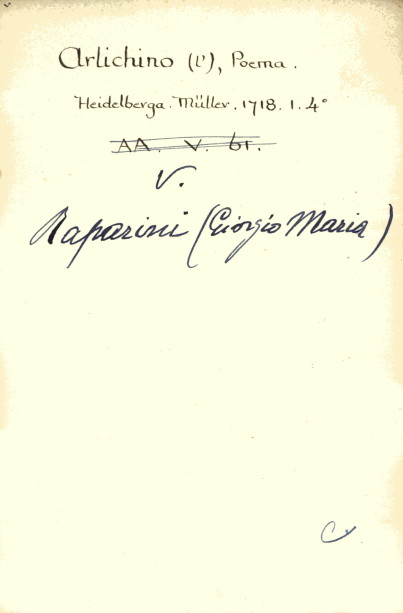 Arlichino (l'), Poema.
Heidelberga. Müller. 1718. 1. 4°
AA. V. 61.
V.
Raparini (Giorgio Maria)